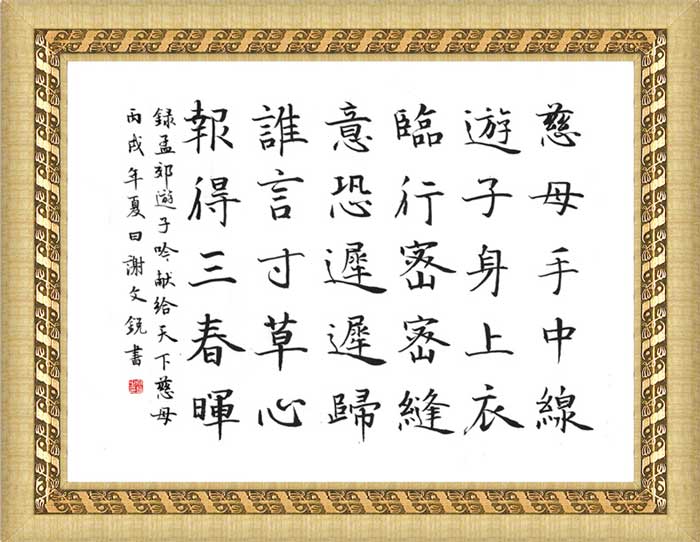 慈母手中線
遊子身上衣
臨行密密縫
意恐遲遲歸
誰言寸草心
報得三春暉
録孟郊遊子吟献给天下慈母
丙戌年夏日謝文鋭書